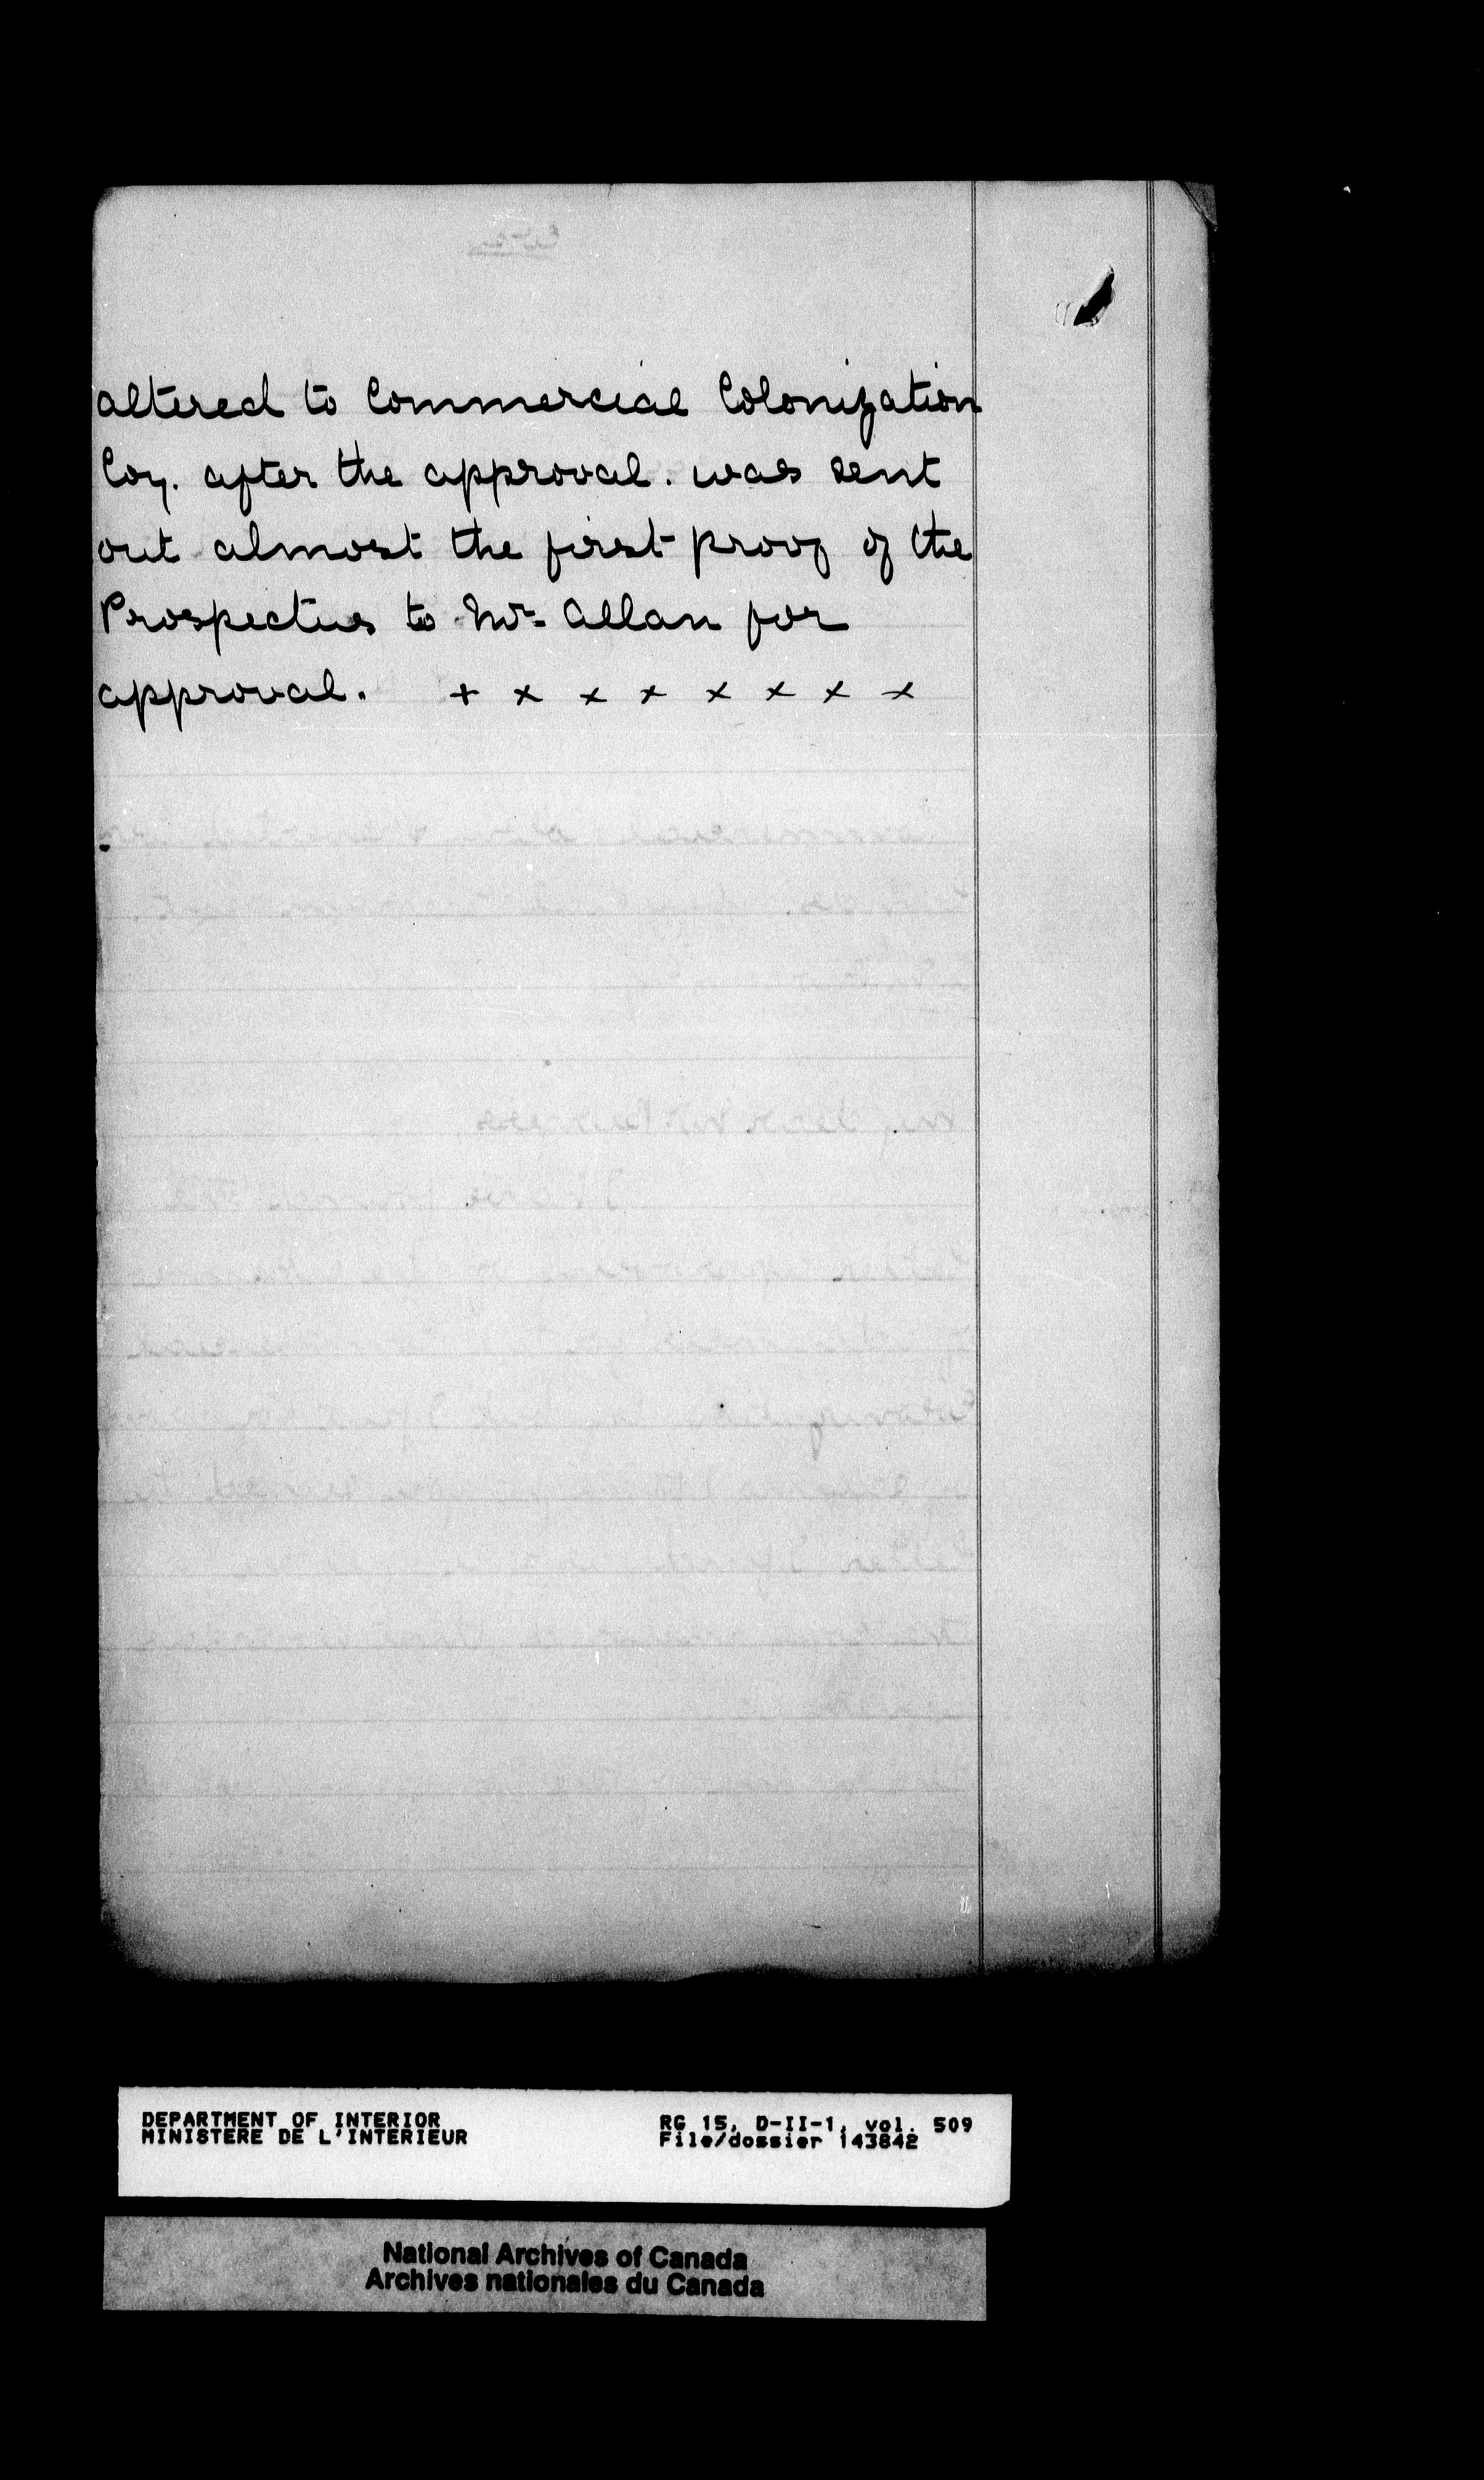 altered to Commercial Colonization
Coy. after the approval. was sent
out almost the first proof of the
Prospectus to Mr. Allan for
approval. + x x x x x x x
DEPARTMENT OF INTERIOR
MINISTERE DE L'INTERIEUR
RG 15, D-II-1, vol. 509
File/dossier 143842
National Archives of Canada
Archives nationales du Canada